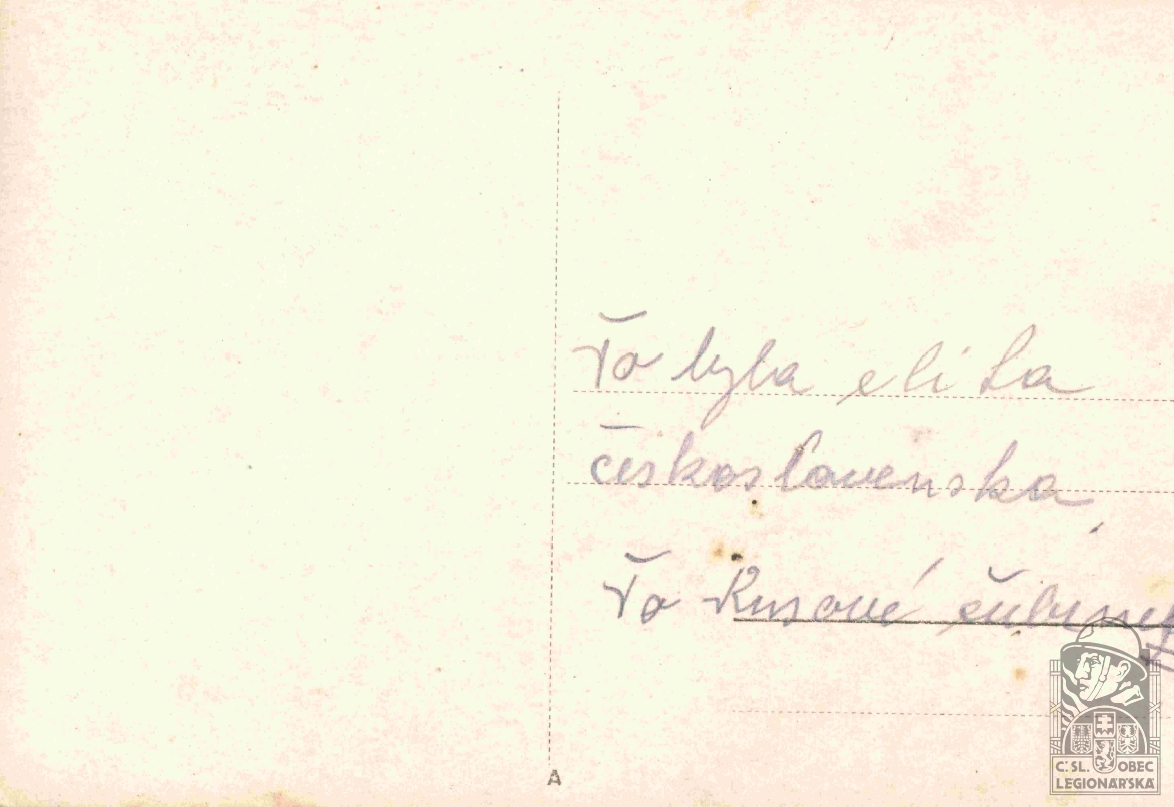 To byla elita
československa,
To Rusové
A
Č.SL. OBEC
LEGIONÁŘSKÁ